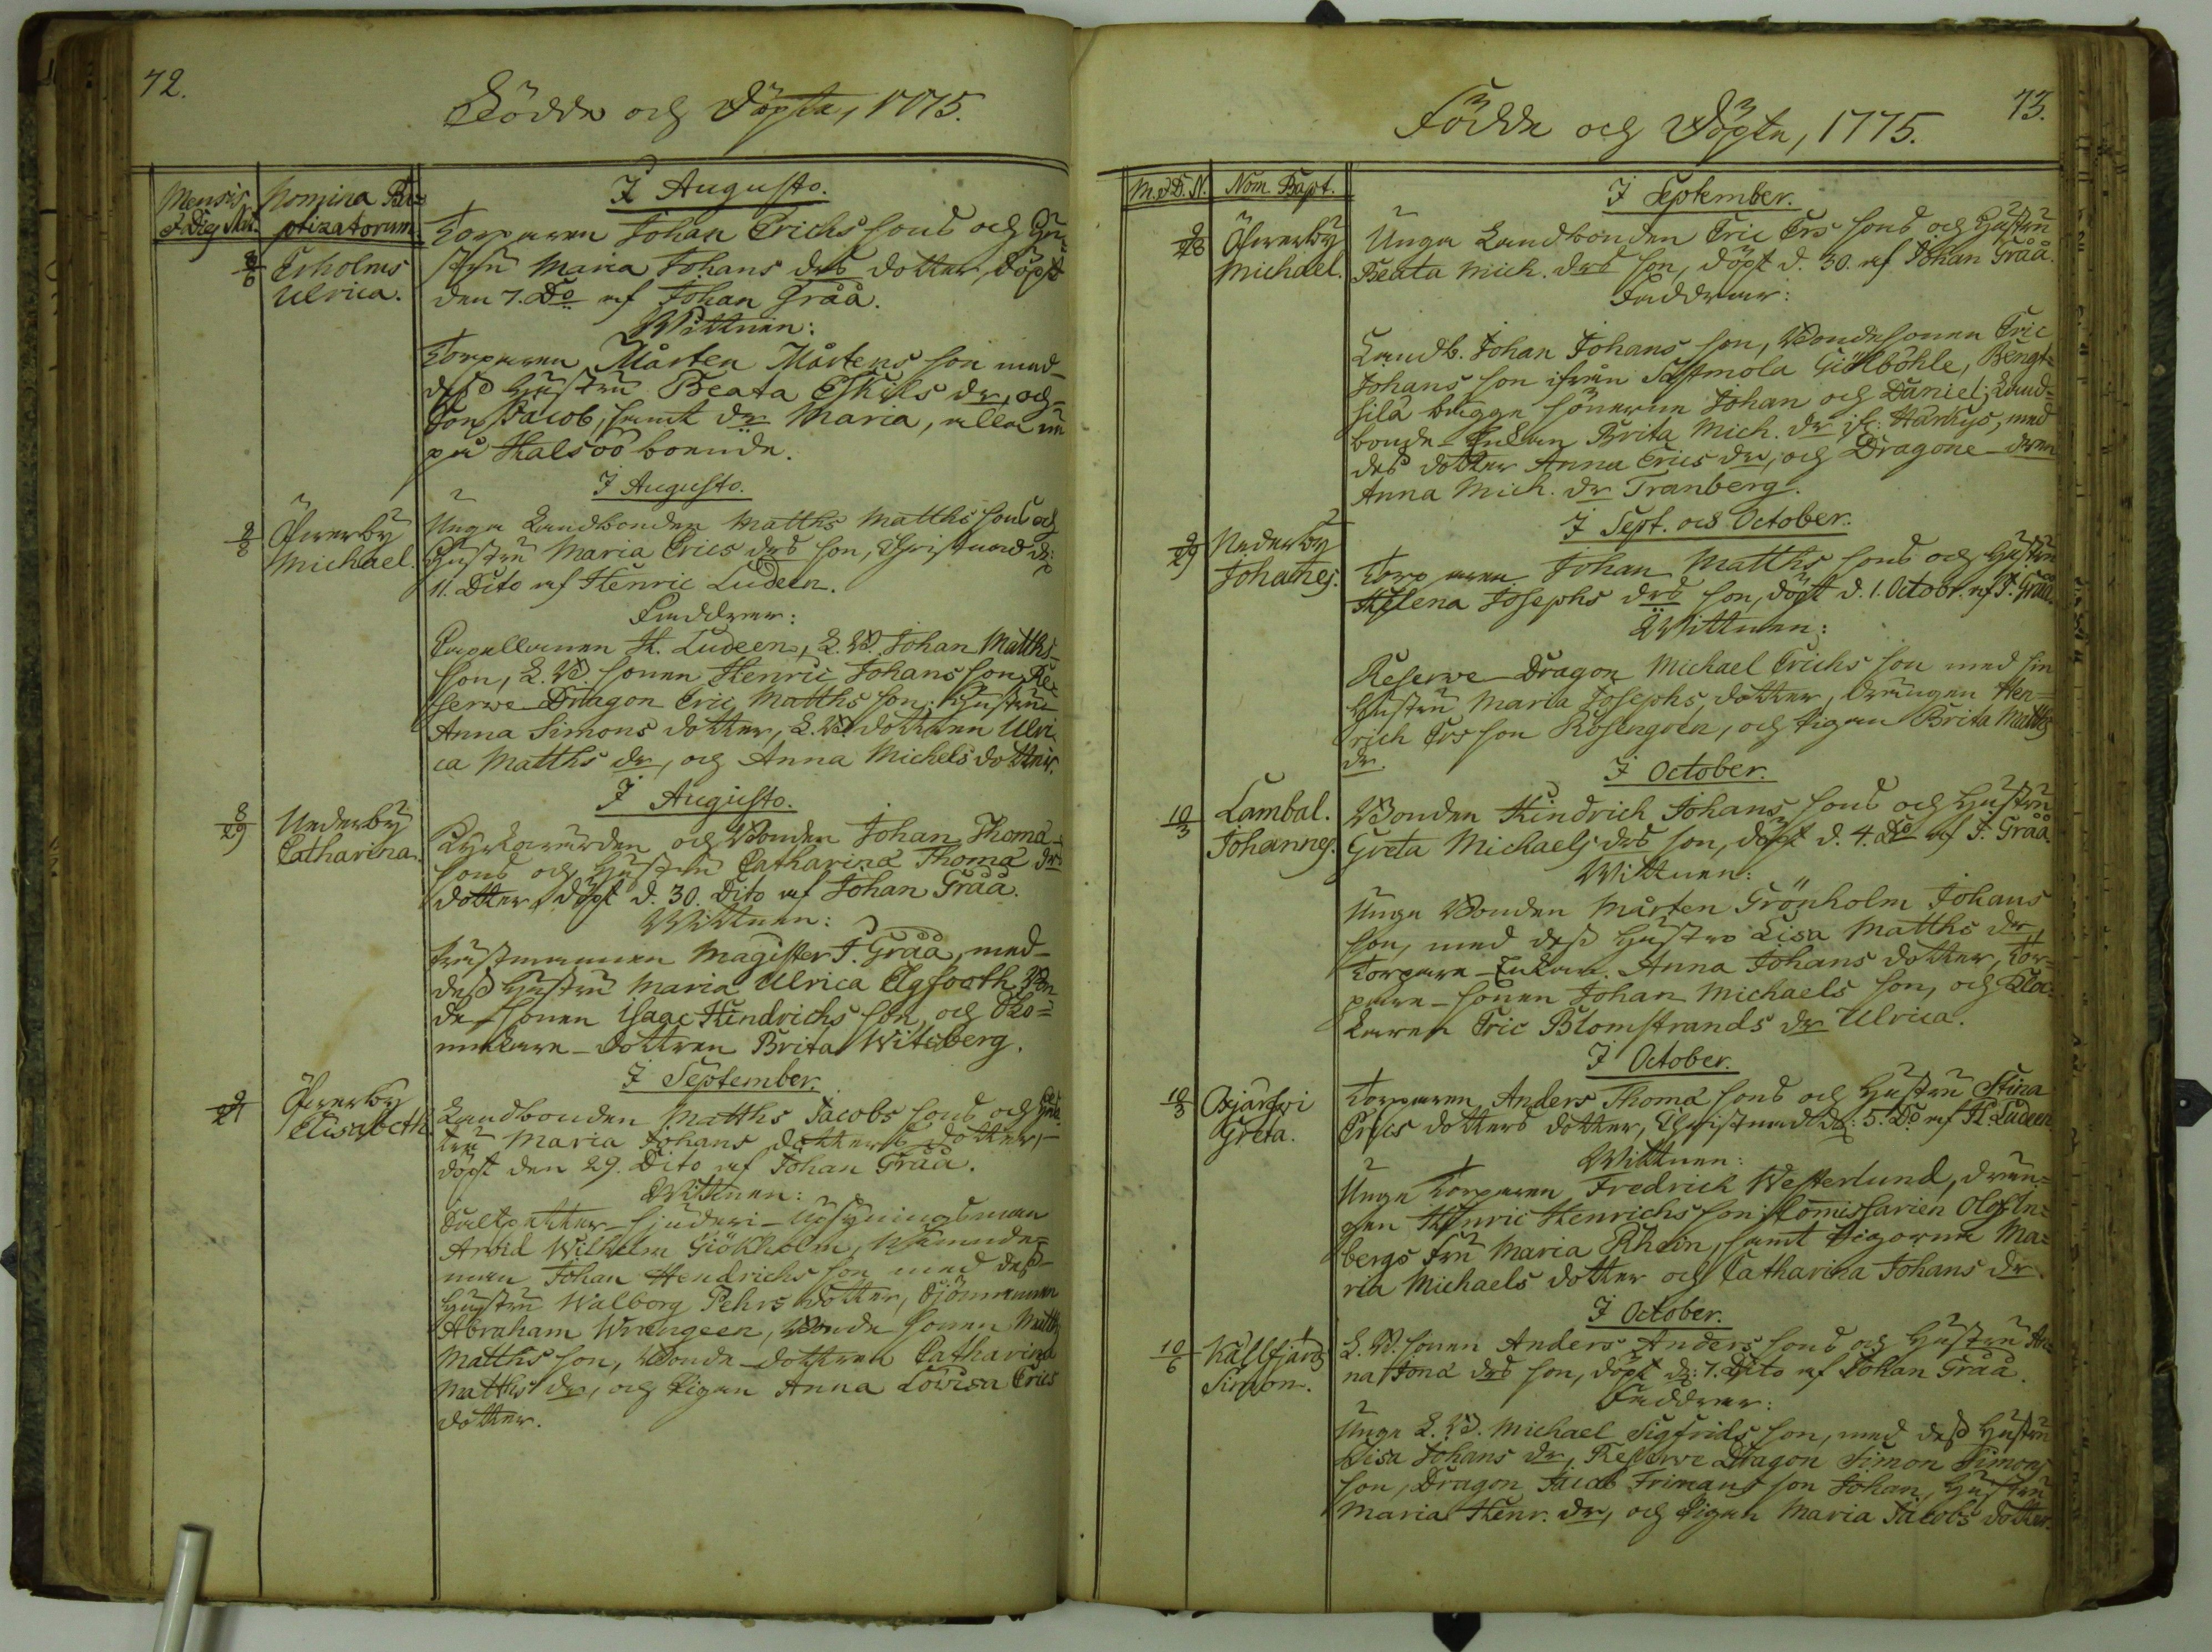 72.
Födde och Döpte, 1775.
Mensis Nomina Ba=
& Dies Nat. ptizatorum
I Augusto.
8/6 Erholms Ulrica.
Torparen Johan Erichs sons och Hu=
stru Maria Johans drs dotter, döpt
den 7. Do af Johan Gråå.
Wittnen:
Torparen Mårten Mårtens son med
dess Hustru Beata Eskils dr, och
Son Jacob, samt dr Maria, alla
på Kalsöö boende.
I Augusto.
8/8 Öfwerby Michael.
Unga Landbonden Matths Matths sons och
Hustru Maria Erics drs son, Christnad d:
11. Dito af Henric Ludeen.
Faddrar:
Capellanen H. Ludeen, L. B. Johan Matths
son, L. B. sonen Henric Johans son, Re=
serwe Dragon Eric Matths son, Hustru
Anna Simons dotter, L. B. dottren Ulri=
ca Matths dr, och Anna Michels dotter.
I Augusto.
8/29 Nederby Catharina.
Kyrkowärden och Bonden Johan Thomæ
sons och Hustru Catharina Thomæ drs
dotter, döpt d. 30. Dito af Johan Gråå.
Wittnen:
Magister J. Gråå, med
dess Hustru Maria Ulrica Elgfooth, Bon=
de-sonen Isaac Hindrichs son, och
dottren Brita Witsberg.
I September.
9/21 Öfwerby Elisabeth
Landbonden Matths Jacobs sons och Hus=
tru Maria Johans dotters dotter,
döpt den 29. Dito af Johan Gråå.
Wittnen:
Saltpetter-sjuderi-Upsyningsman
Arvid Wilhelm Giökholm, Nämnde=
man Johan Hendrichs son med dess
Hustru Walborg Pehrs dotter,
Abraham Wrangeen, Bonde sonen Matths
Matths son, Bonde-dottren Catharina
Matths dr, och Pigan Anna Lovisa Erics
dotter.
73.
Födde och Döpte, 1775.
M. & D. N. Nom. Bapt.
I September.
9/28 Öfwerby Michael.
Unga Landbonden Eric Ers sons och Hustru
Beata Mich. drs son, döpt d. 30. af Johan Gråå.
Faddrar:
Landb. Johan Johans son, Bondesonen Eric
Johans son ifrån Sastmola Giöklböhle, Bengt=
silä bägge sönerne Johan och Daniel; Land=
bonde-Enkan Brita Mich. dr if: Härkys, med
des dotter Anna Erics dr, och Dragone-
Anna Mich. dr Tranberg.
I Sept. och October.
9/29 Nederby Johannes.
Torparen Johan Matths sons och Hustru
Helena Josephs drs son, döpt d. 1. Octobr. af J. Gråå.
Wittnen:
Reserwe-Dragon Michael Erichs son med sin
Hustru Maria Josephs dotter, drängen Hen=
rich Ers son Rosengren, och Pigan Brita Matths
dr.
I October.
10/3 Lambal. Johannes.
Bonden Hindrich Johans sons och Hustru
Greta Michaels drs son, döpt d. 4. Do af J. Gråå.
Wittnen:
Unga Bonden Mårten Grönholm Johans
son, med dess Hustro Lisa Matths dr,
Torpare-Enkan Anna Johans dotter, Tor=
pare-sonen Johan Michaels son, och Kloc=
karen Eric Blomstrands dr Ulrica.
I October.
10/3 Oxjärfwi Greta.
Torparen Anders Thomæ sons och Hustru Stina
Erics dotters dotter, Christnad d: 5. Do af H. Ludeen.
Wittnen:
Unga Torparen Fredrich Westerlund, drän=
gen Henric Henrichs son; Comissarien
bergs fru Maria Rhein, samt Pigorna Ma=
ria Michaels dotter och Catharina Johans dr.
I October.
10/6 Källfjärd Simon.
L. B. sonen Anders Anders sons och Hustru An=
na Jonæ drs son, döpt d: 7. Dito af Johan Gråå.
Faddrar:
Unga L. B. Michael Sigfrids son, med dess Hustru
Lisa Johans dr, Reserwe Dragon Simon Simons
son, Dragon Jacob Frimans son Johan, Hustru
Maria Henr. dr, och Pigan Maria Jacobs dotter.